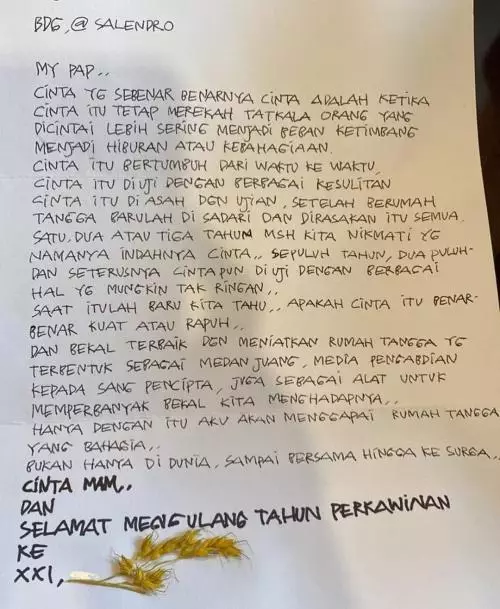 BDG, @ SALENDRO
MY PAP..
CINTA YG SEBENAR BENARNYA CINTA ADALAH KETIKA
CINTA ITU TETAP MEREKAH TATKALA ORANG YANG
DICINTAI LEBIH SERING MENJADI BEBAN KETIMBANG
MENJADI HIBURAN ATAU KEBAHAGIAAN.
CINTA ITU BERTUMBUH DARI WAKTU KE WAKTU,
CINTA ITU DI UJI DENGAN BERBAGAI KESULITAN
CINTA ITU DI ASAH DGN UJIAN, SETELAH BERUMAH
TANGGA BARULAH DI SADARI DAN DIRASAKAN ITU SEMUA.
SATU, DUA ATAU TIGA TAHUN MSH KITA NIKMATI YG
NAMANYA INDAHNYA CINTA.. SEPULUH TAHUN, DUA PULUH-
DAN SETERUSNYA CINTAPUN DI UJI DENGAN BERBAGAI
HAL YG MUNGKIN TAK RINGAN..
SAAT ITULAH BARU KITA TAHU.. APAKAH CINTA ITU BENAR-
BENAR KUAT ATAU RAPUH..
DAN BEKAL TERBAIK DGN MENIATKAN RUMAH TANGGA YG
TERBENTUK SEBAGAI MEDAN JUANG, MEDIA PENGABDIAN
KEPADA SANG PENCIPTA, JUGA SEBAGAI ALAT UNTUK
MEMPERBANYAK BEKAL KITA MENGHADAPNYA..
HANYA DENGAN ITU AKU AKAN MENGGAPAI RUMAH TANGGA
YANG BAHAGIA..
BUKAN HANYA DI DUNIA, SAMPAI BERSAMA HINGGA KE SURGA..
CINTA MAM..
DAN
SELAMAT MENGULANG TAHUN PERKAWINAN
KE
XXI,